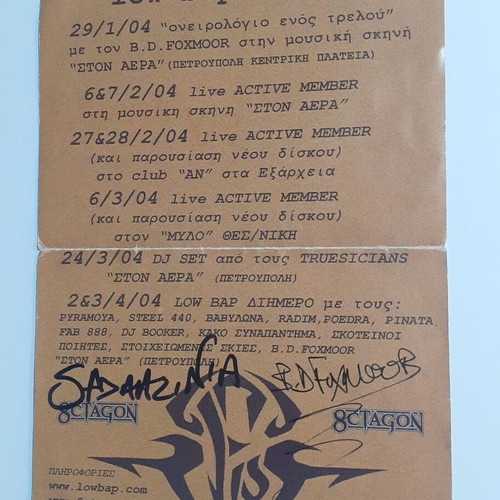 29/1/04 "ονειρολόγιο ενός τρελού"
με τον B.D.FOXMOOR στην μουσική σκηνή
"ΣΤΟΝ ΑΕΡΑ" (ΠΕΤΡΟΥΠΟΛΗ ΚΕΝΤΡΙΚΗ ΠΛΑΤΕΙΑ)
6&7/2/04 live ACTIVE MEMBER
στη μουσικη σκηνη "ΣΤΟΝ ΑΕΡΑ"
27&28/2/04 live ACTIVE MEMBER
(και παρουσίαση νέου δίσκου)
στο club "AN" στα Εξάρχεια
6/3/04 live ACTIVE MEMBER
(και παρουσίαση νέου δίσκου)
στον "ΜΥΛΟ" ΘΕΣ/ΝΙΚΗ
24/3/04 DJ SET από τους TRUESICIANS
"ΣΤΟΝ ΑΕΡΑ" (ΠΕΤΡΟΥΠΟΛΗ)
2&3/4/04 LOW BAP ΔΙΗΜΕΡΟ με τους:
PYRAMOYA, STEEL 440, ΒΑΒΥΛΩΝΑ, RADIM, POEDRA, PINATA,
FAB 888, DJ BOOKER, ΚΑΚΟ ΣΥΝΑΠΑΝΤΗΜΑ, ΣΚΟΤΕΙΝΟΙ
ΠΟΙΗΤΕΣ, ΣΤΟΙΧΕΙΩΜΕΝΕΣ ΣΚΙΕΣ, B.D.FOXMOOR
"ΣΤΟΝ ΑΕΡΑ" (ΠΕΤΡΟΥΠΟΛΗ)
SADAHZINIA B.D.FOXMOOR
8CTAGON 8CTAGON
ΠΛΗΡΟΦΟΡΙΕΣ
www.lowbap.com